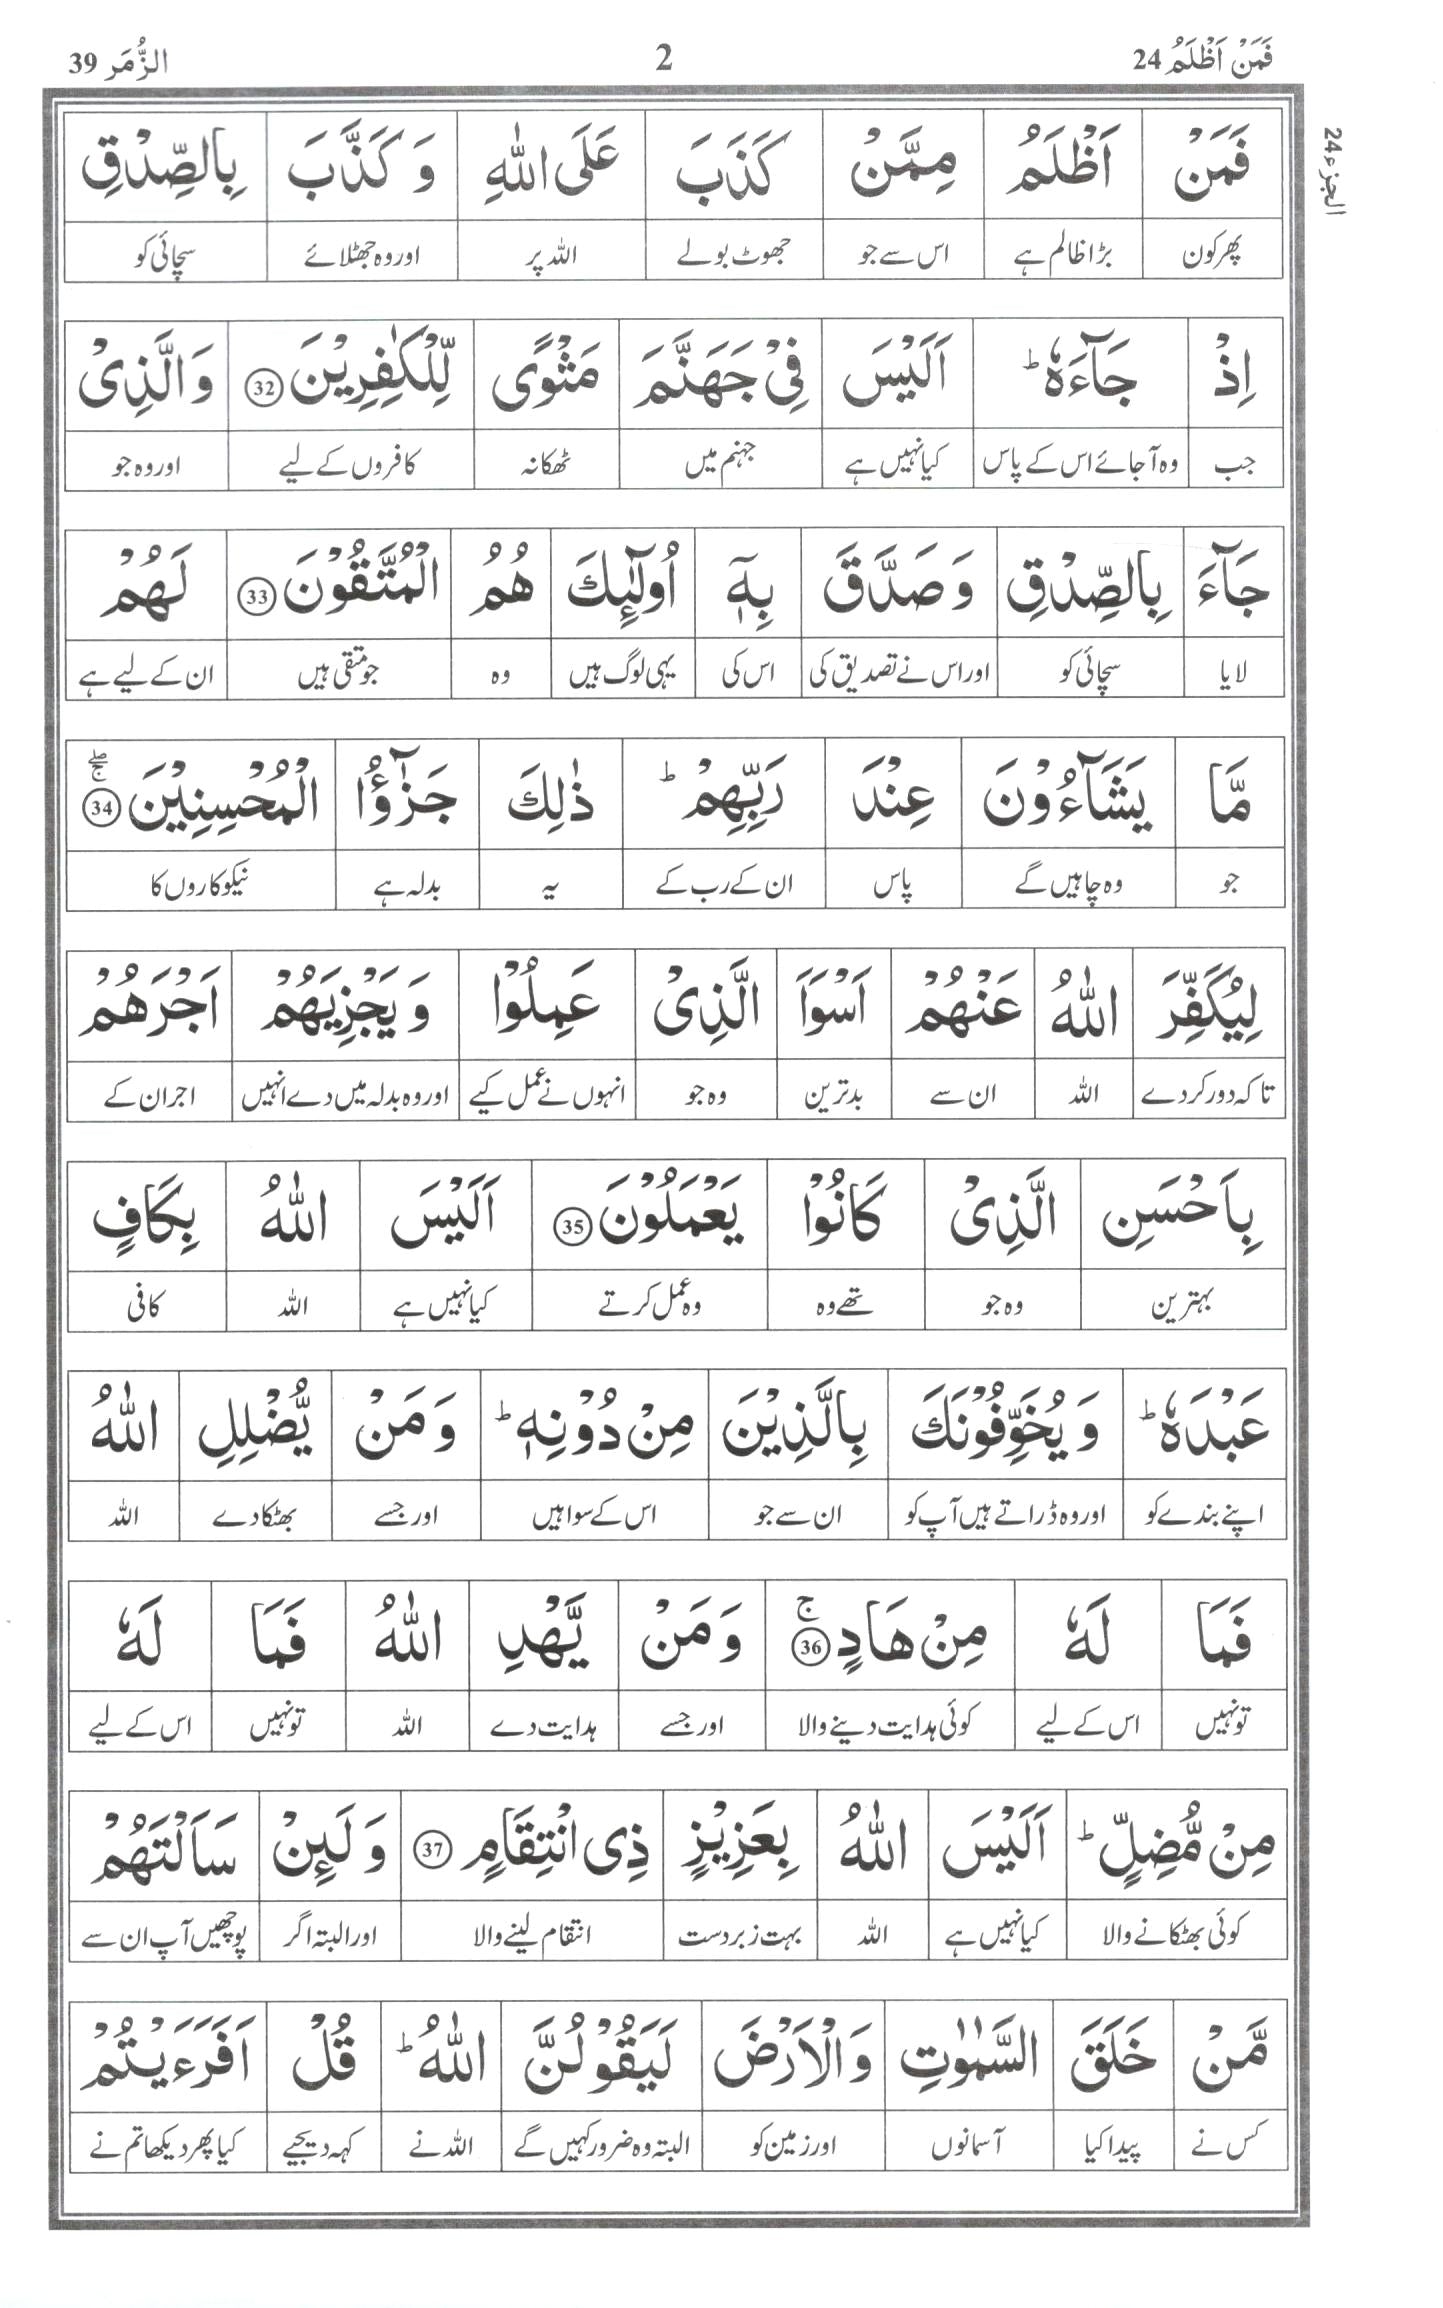 فَمَنْ اَظْلَمُ 24 2 الزُّمَر 39
الجزء 24
فَمَنْ اَظْلَمُ مِمَّنْ كَذَبَ عَلَى اللّٰهِ وَ كَذَّبَ بِالصِّدْقِ
پھر کون بڑا ظالم ہے اس سے جو جھوٹ بولے اللہ پر اور وہ جھٹلائے سچائی کو
اِذْ جَآءَهٗ ؕ اَلَيْسَ فِيْ جَهَنَّمَ مَثْوًى لِّلْكٰفِرِيْنَ 32 وَ الَّذِيْ
جب وہ آجائے اس کے پاس کیا نہیں ہے جہنم میں ٹھکانہ کافروں کے لیے اور وہ جو
جَآءَ بِالصِّدْقِ وَ صَدَّقَ بِهٖۤ اُولٰٓئِكَ هُمُ الْمُتَّقُوْنَ 33 لَهُمْ
لایا سچائی کو اور اس نے تصدیق کی اس کی یہی لوگ ہیں وہ جو متقی ہیں ان کے لیے ہے
مَّا يَشَآءُوْنَ عِنْدَ رَبِّهِمْ ؕ ذٰلِكَ جَزٰٓؤُا الْمُحْسِنِيْنَ 34 ۚۖ
جو وہ چاہیں گے پاس ان کے رب کے یہ بدلہ ہے نیکوکاروں کا
لِيُكَفِّرَ اللّٰهُ عَنْهُمْ اَسْوَاَ الَّذِيْ عَمِلُوْا وَ يَجْزِيَهُمْ اَجْرَهُمْ
تاکہ دور کردے اللہ ان سے بدترین وہ جو انہوں نے عمل کیے اور وہ بدلہ میں دے انہیں اجر ان کے
بِاَحْسَنِ الَّذِيْ كَانُوْا يَعْمَلُوْنَ 35 اَلَيْسَ اللّٰهُ بِكَافٍ
بہترین وہ جو تھے وہ وہ عمل کرتے کیا نہیں ہے اللہ کافی
عَبْدَهٗ ؕ وَ يُخَوِّفُوْنَكَ بِالَّذِيْنَ مِنْ دُوْنِهٖ ؕ وَ مَنْ يُّضْلِلِ اللّٰهُ
اپنے بندے کو اور وہ ڈراتے ہیں آپ کو ان سے جو اس کے سوا ہیں اور جسے بھٹکا دے اللہ
فَمَا لَهٗ مِنْ هَادٍ 36 ۚ وَ مَنْ يَّهْدِ اللّٰهُ فَمَا لَهٗ
تو نہیں اس کے لیے کوئی ہدایت دینے والا اور جسے ہدایت دے اللہ تو نہیں اس کے لیے
مِنْ مُّضِلٍّ ؕ اَلَيْسَ اللّٰهُ بِعَزِيْزٍ ذِي انْتِقَامٍ 37 وَ لَئِنْ سَاَلْتَهُمْ
کوئی بھٹکانے والا کیا نہیں ہے اللہ بہت زبردست انتقام لینے والا اور البتہ اگر پوچھیں آپ ان سے
مَّنْ خَلَقَ السَّمٰوٰتِ وَ الْاَرْضَ لَيَقُوْلُنَّ اللّٰهُ ؕ قُلْ اَفَرَءَيْتُمْ
کس نے پیدا کیا آسمانوں اور زمین کو البتہ وہ ضرور کہیں گے اللہ نے کہہ دیجیے کیا پھر دیکھا تم نے